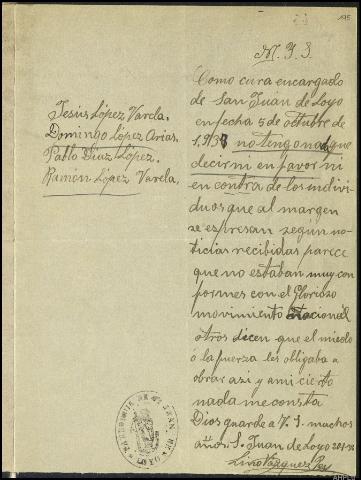 195
M. Y. S.
Como cura encargado
de San Juan de Loyo
en fecha 5 de octubre de
1.937 no tengo nada que
decir ni en favor ni
en contra de los indivi-
duos que al margen
se expresan según no-
ticias recibidas parece
que no estaban muy con
formes con el Glorioso
movimiento Nacional
otros dicen que el miedo
o la fuerza les obligaba a
obrar asi y a mi cierto
nada me consta
Dios guarde a V. S. muchos
años. S. Juan de Loyo
Lino Vázquez
Jesús López Varela.
Domingo López Arias.
Pablo Díaz López.
Ramón López Varela.
PARROQUIA DE SN. JUAN DE LOYO